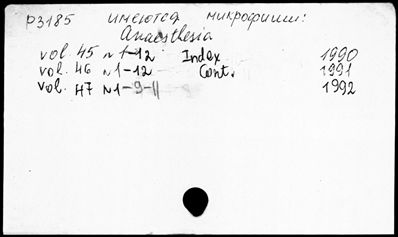 р3185 имеются микрофиши:
Anaesthesia
vol. 45 N 1-12 Index 1990
vol. 46 N 1-12 Cont. 1991
vol. 47 N 1-9-11 1992